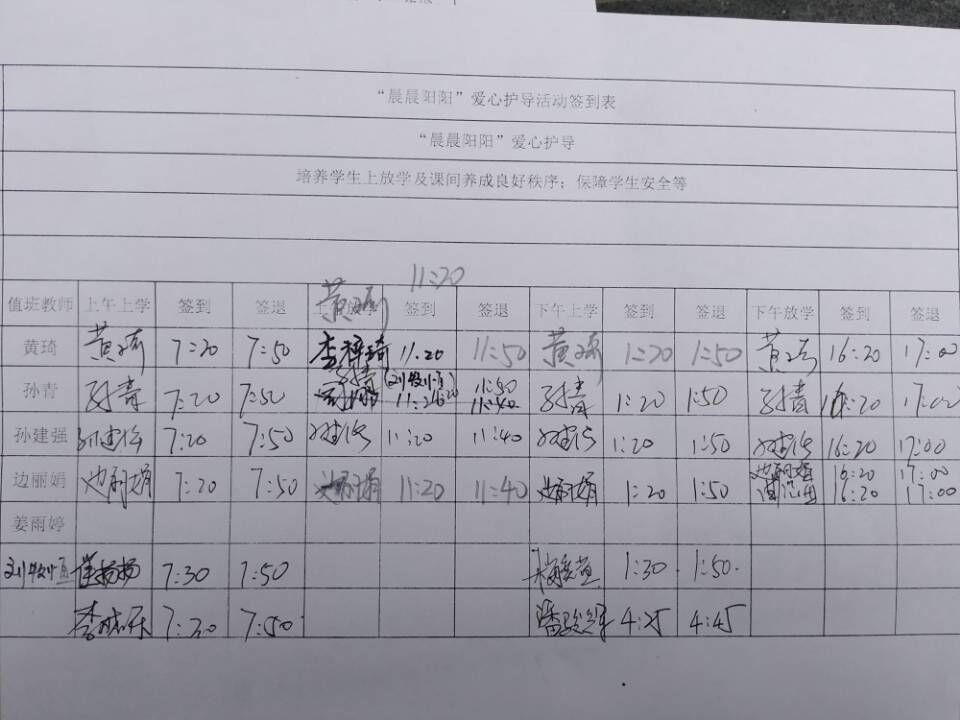 “晨晨阳阳”爱心护导活动签到表
“晨晨阳阳”爱心护导
培养学生上放学及课间养成良好秩序；保障学生安全等
黄琦 11:20
值班教师 上午上学 签到 签退 签到 签退 下午上学 签到 签退 下午放学 签到 签退
黄琦 黄琦 7:20 7:50 李梓琦 11.20 11:50 黄琦 1:20 1:50 黄琦 16:20 17:00
孙青 孙青 7:20 7:50 孙青 11:50 11:40 孙青 1:20 1:50 孙青 16:20 17:00
孙建强 孙建强 7:20 7:50 孙建强 11:20 11:40 孙建强 1:20 1:50 孙建强 16:20 17:00
边丽娟 边丽娟 7:20 7:50 边丽娟 11:20 11:40 边丽娟 1:20 1:50 边丽娟 16:20 17:00
16:20 17:00
姜雨婷
崔扬扬 7:30 7:50 1:30 1:50
7:30 7:50 潘骏 4:25 4:45